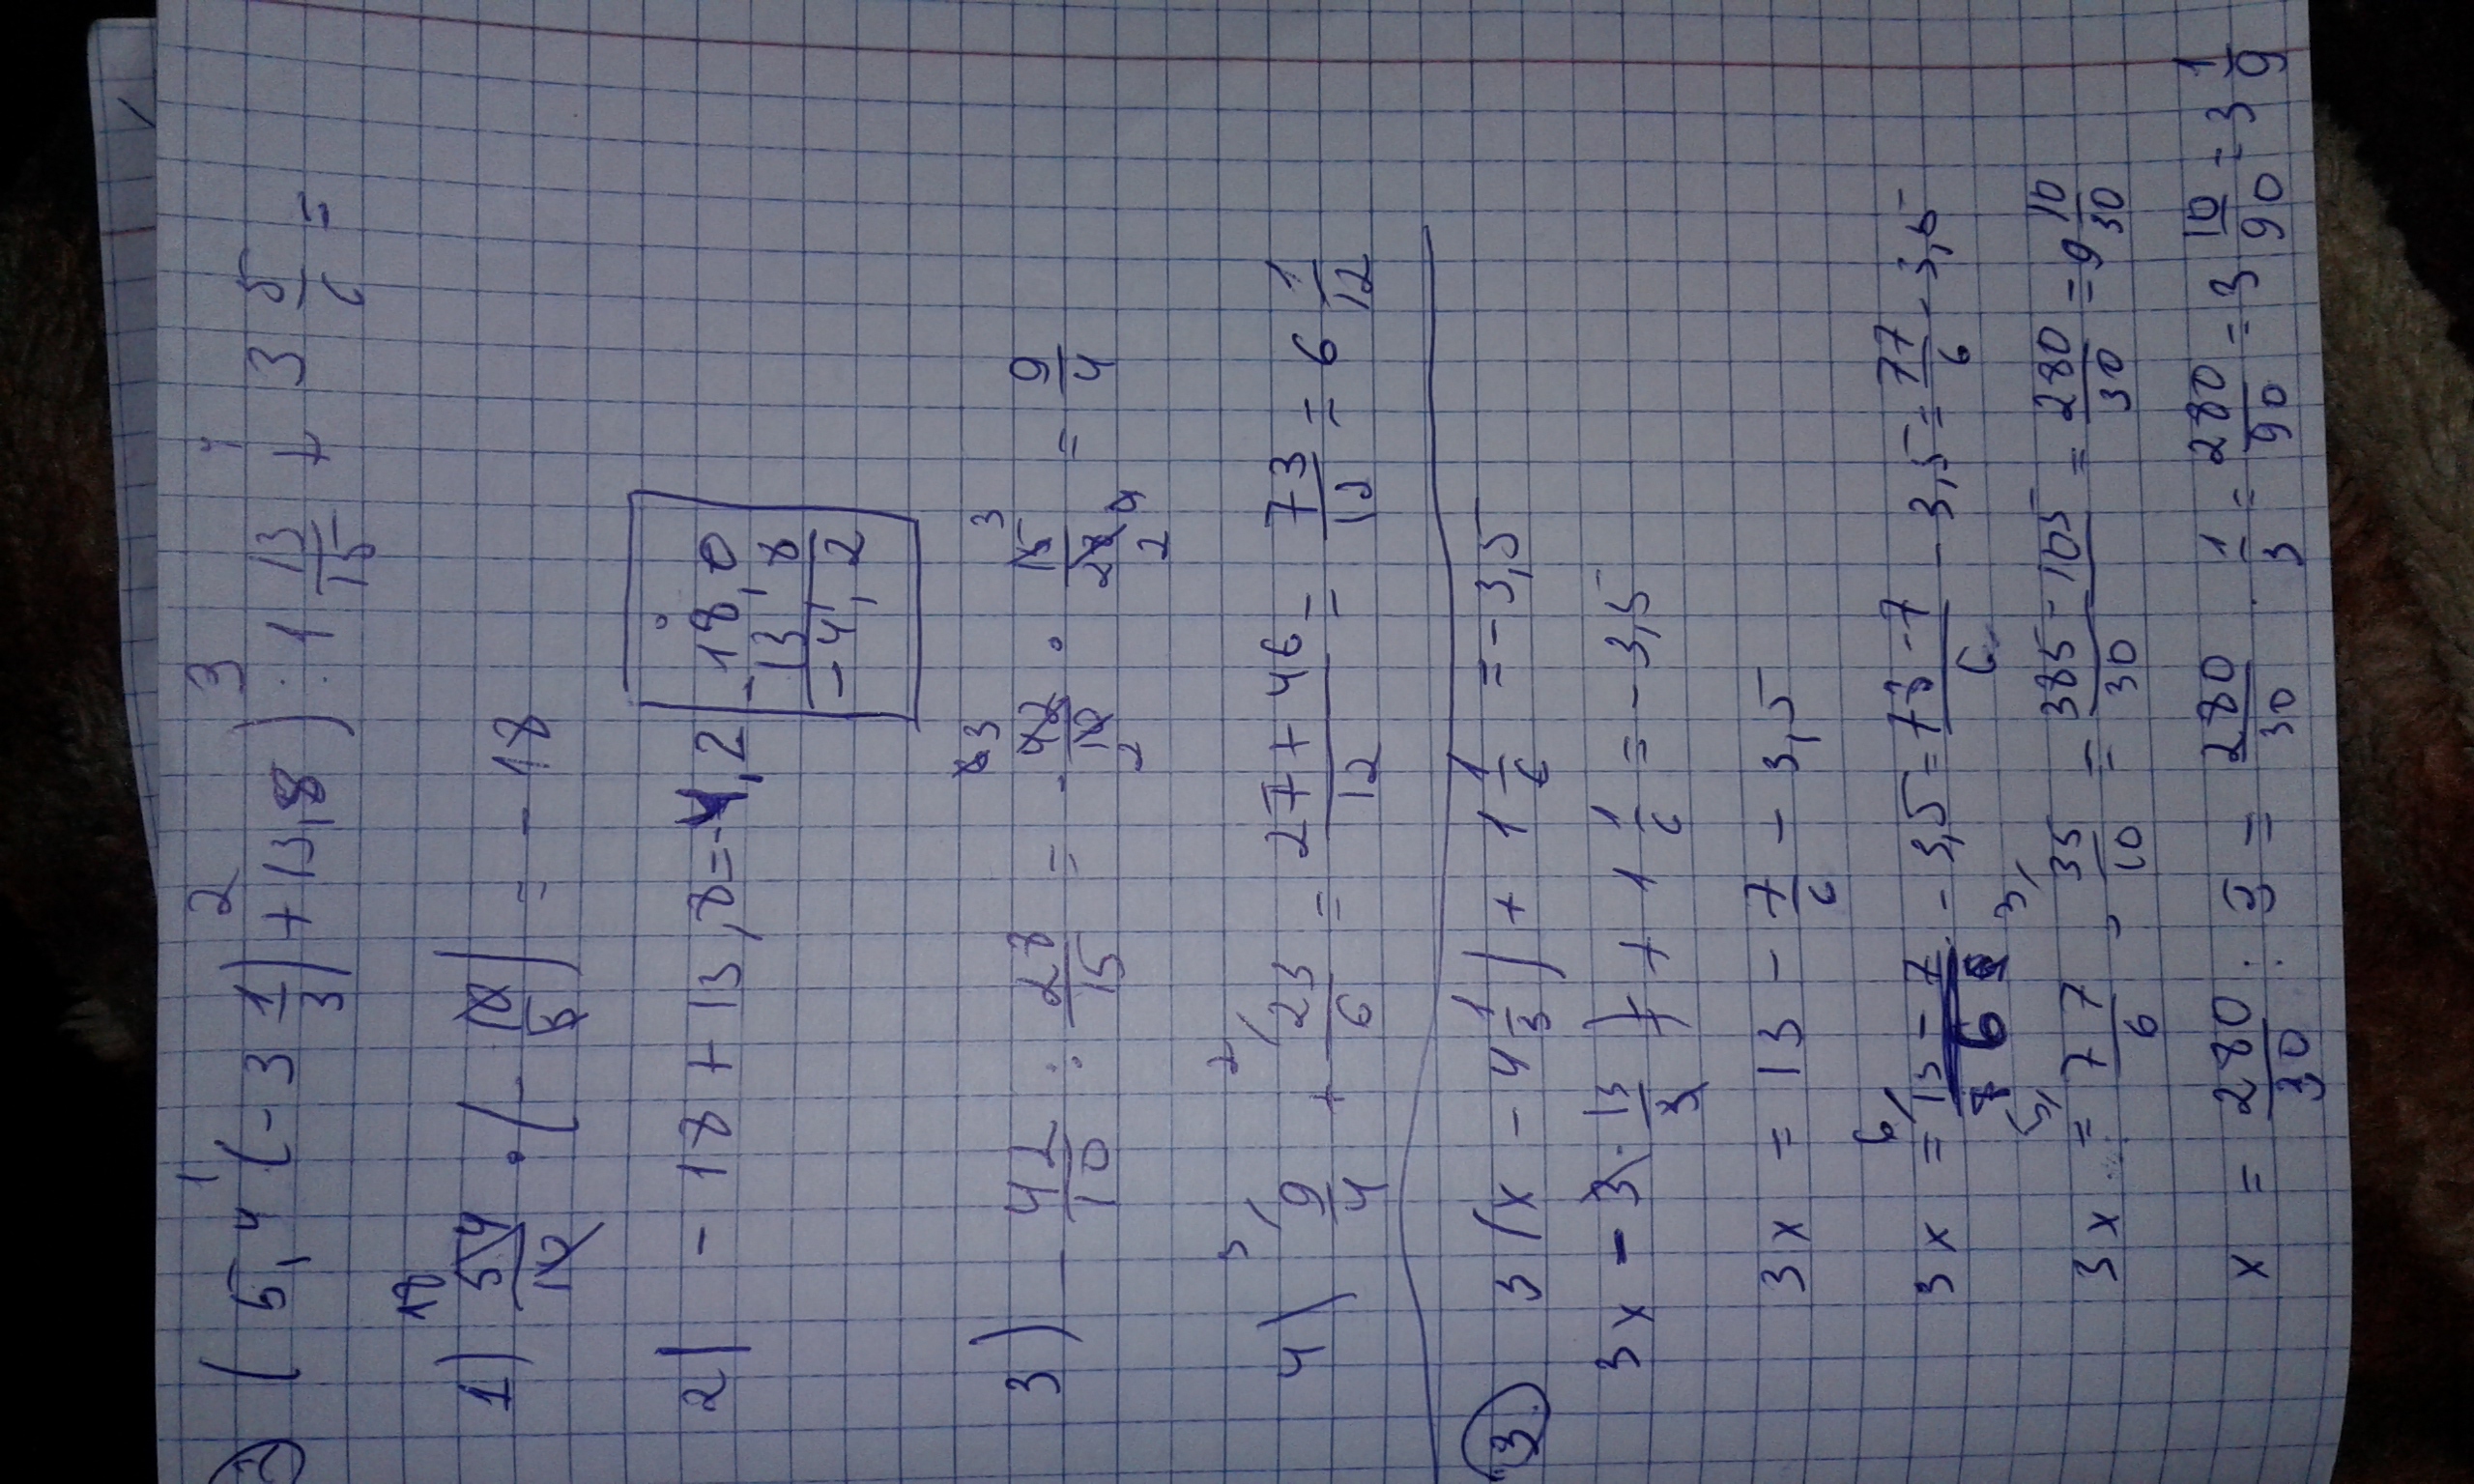 ( 5,4 · ( - 3 1/3 ) + 13,8 ) : 1 13/15 + 3 5/6 =
1) 54/10 · ( - 10/3 ) = - 18
2) - 18 + 13,8 = - 4,2
18,0
- 13,8
- 4,2
3) - 42/10 : 28/15 = - 42/10 · 15/28 = 9/4
4) 9/4 + 23/6 = 27 + 46/12 = 73/12 = 6 1/12
3 3 ( x - 4 1/3 ) + 1 1/6 = - 3,5
3x - 3 · 13/3 + 1 1/6 = - 3,5
3x = 13 - 7/6 - 3,5
3x = 13 - 7/6 - 3,5 = 78 - 7/6 - 3,5 = 77/6 - 3,5
3x = 77/6 - 35/10 = 385 - 105/30 = 280/30 = 9 10/30
x = 280/30 : 3 = 280/30 · 1/3 = 280/90 = 3 10/90 = 3 1/9